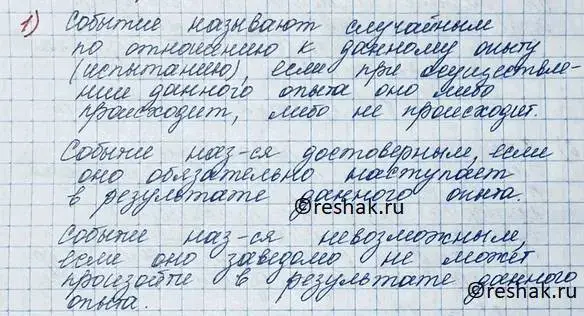 1) Событие называют случайным
по отношению к данному опыту
(испытанию), если при осуществле-
нии данного опыта оно либо
происходит, либо не происходит.
Событие наз-ся достоверным, если
оно обязательно наступает
в результате данного опыта.
©reshak.ru
Событие наз-ся невозможным,
если оно заведомо не может
произойти в результате данного
опыта.
©reshak.ru